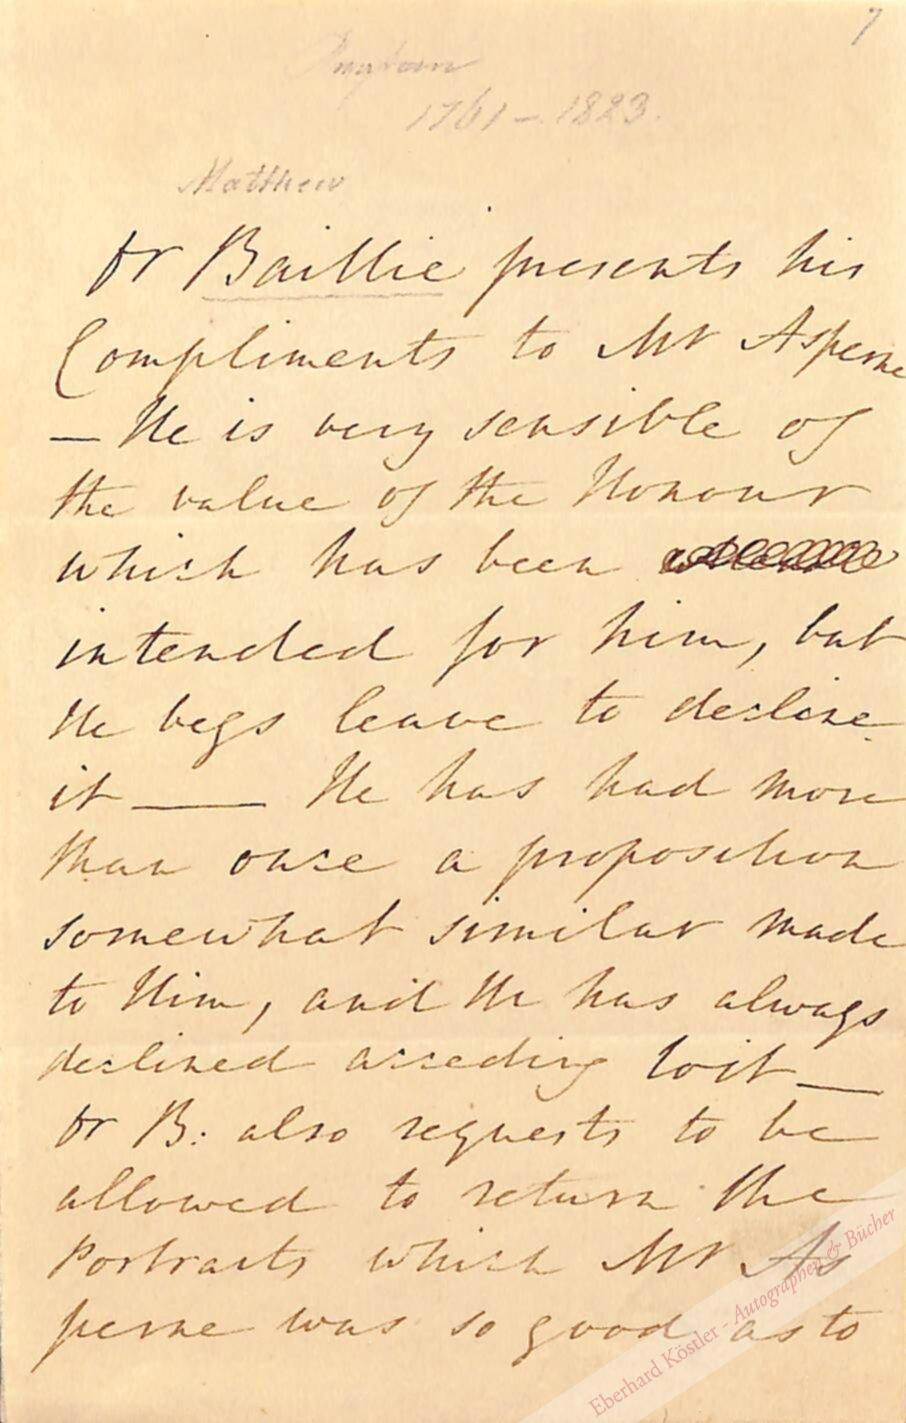 7
1761 – 1823.
Matthew
Dr Baillie presents his
Compliments to Mr Asperne
— He is very sensible of
the value of the Honour
which has been
intended for him, but
He begs leave to decline
it —— He has had more
than once a proposition
somewhat similar made
to Him, and He has always
declined acceding to it —
Dr B: also requests to be
allowed to return the
Portraits which Mr As
perne was so good as to
Eberhard Köstler - Autographen & Bücher